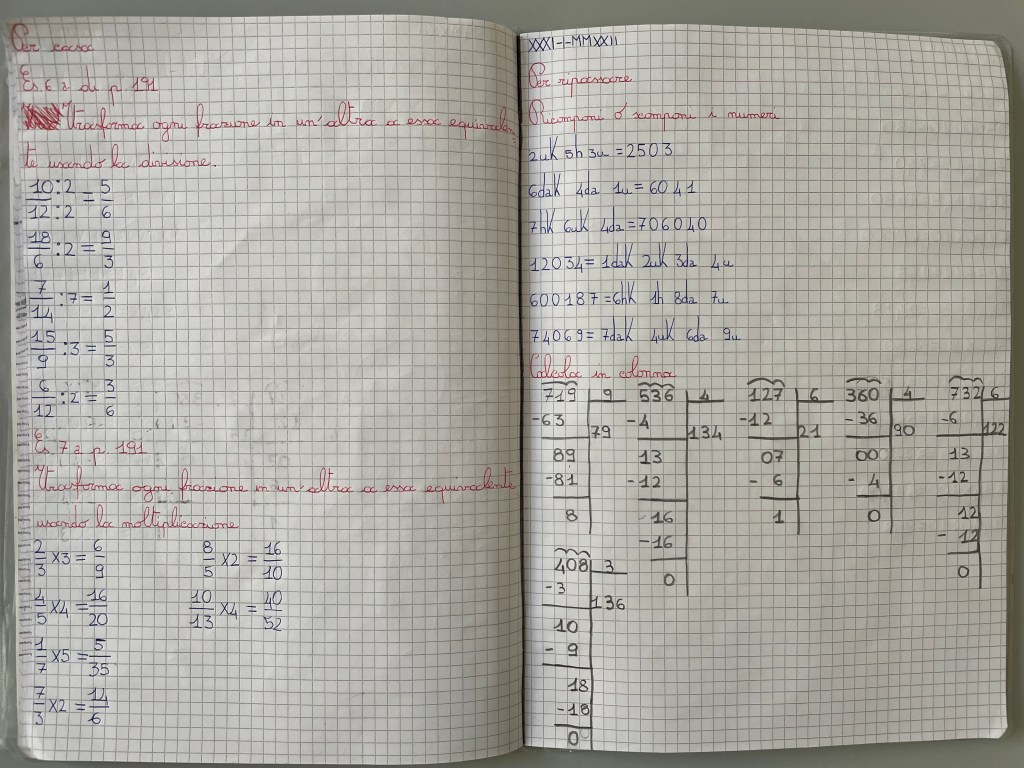 Per casa
Es. 6 a di p 191
Trasforma ogni frazione in un'altra a essa equivalen
te usando la divisione.
10:2 = 5
12:2 = 6
18/6 :2 = 9/3
7/14 :7 = 1/2
15/9 :3 = 5/3
6/12 :2 = 3/6
Es. 7 a p. 191
Trasforma ogni frazione in un'altra a essa equivalente
usando la moltiplicazione
2/3 X3 = 6/9 8/5 X2 = 16/10
4/5 X4 = 16/20 10/13 X4 = 40/52
1/7 X5 = 5/35
7/3 X2 = 14/6
XXXI-I-MMXXII
Per ripassare
Ricomponi o scomponi i numeri
2uK 5h 3u = 2503
6daK 4da 1u = 6041
7hK 6uK 4da = 706040
12034 = 1daK 2uK 3da 4u
600187 = 6hK 1h 8da 7u
74069 = 7daK 4uK 6da 9u
Calcola in colonna
719 9 536 4 127 6 360 4 732 6
-63 79 -4 134 -12 21 -36 90 -6 122
89 13 07 00 13
-81 -12 - 6 - 4 -12
8 -16 1 0 12
-16 - 12
0 0
408 3
-3 136
10
- 9
18
-18
0